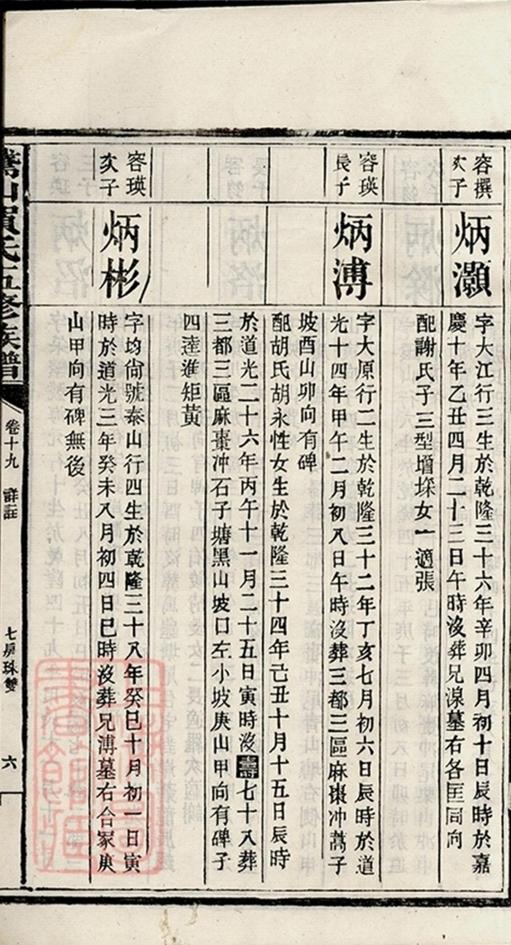 容撰
次子
炳灝
字大江行三生於乾隆三十六年辛卯四月初十日辰時於嘉
慶十年乙丑四月二十三日午時沒葬兄湶墓右各匡同向
配謝氏子三型增堔女一適張
容瑛
長子
炳溥
字大原行二生於乾隆三十二年丁亥七月初六日辰時於道
光十四年甲午二月初八日午時沒葬三都三區麻棗冲蒿子
坡酉山卯向有碑
配胡氏胡永性女生於乾隆三十四年己丑十月十五日辰時
於道光二十六年丙午十一月二十五日寅時沒壽七十八葬
三都三區麻棗冲石子塘黑山坡口左小坡庚山甲向有碑子
四逵進矩黃
容瑛
次子
炳彬
字均尙號泰山行四生於乾隆三十八年癸巳十月初一日寅
時於道光三年癸未八月初四日巳時沒葬兄溥墓右合冢庚
山甲向有碑無後
山賀氏五修族譜
卷十九
詳註
七房珠雙
六